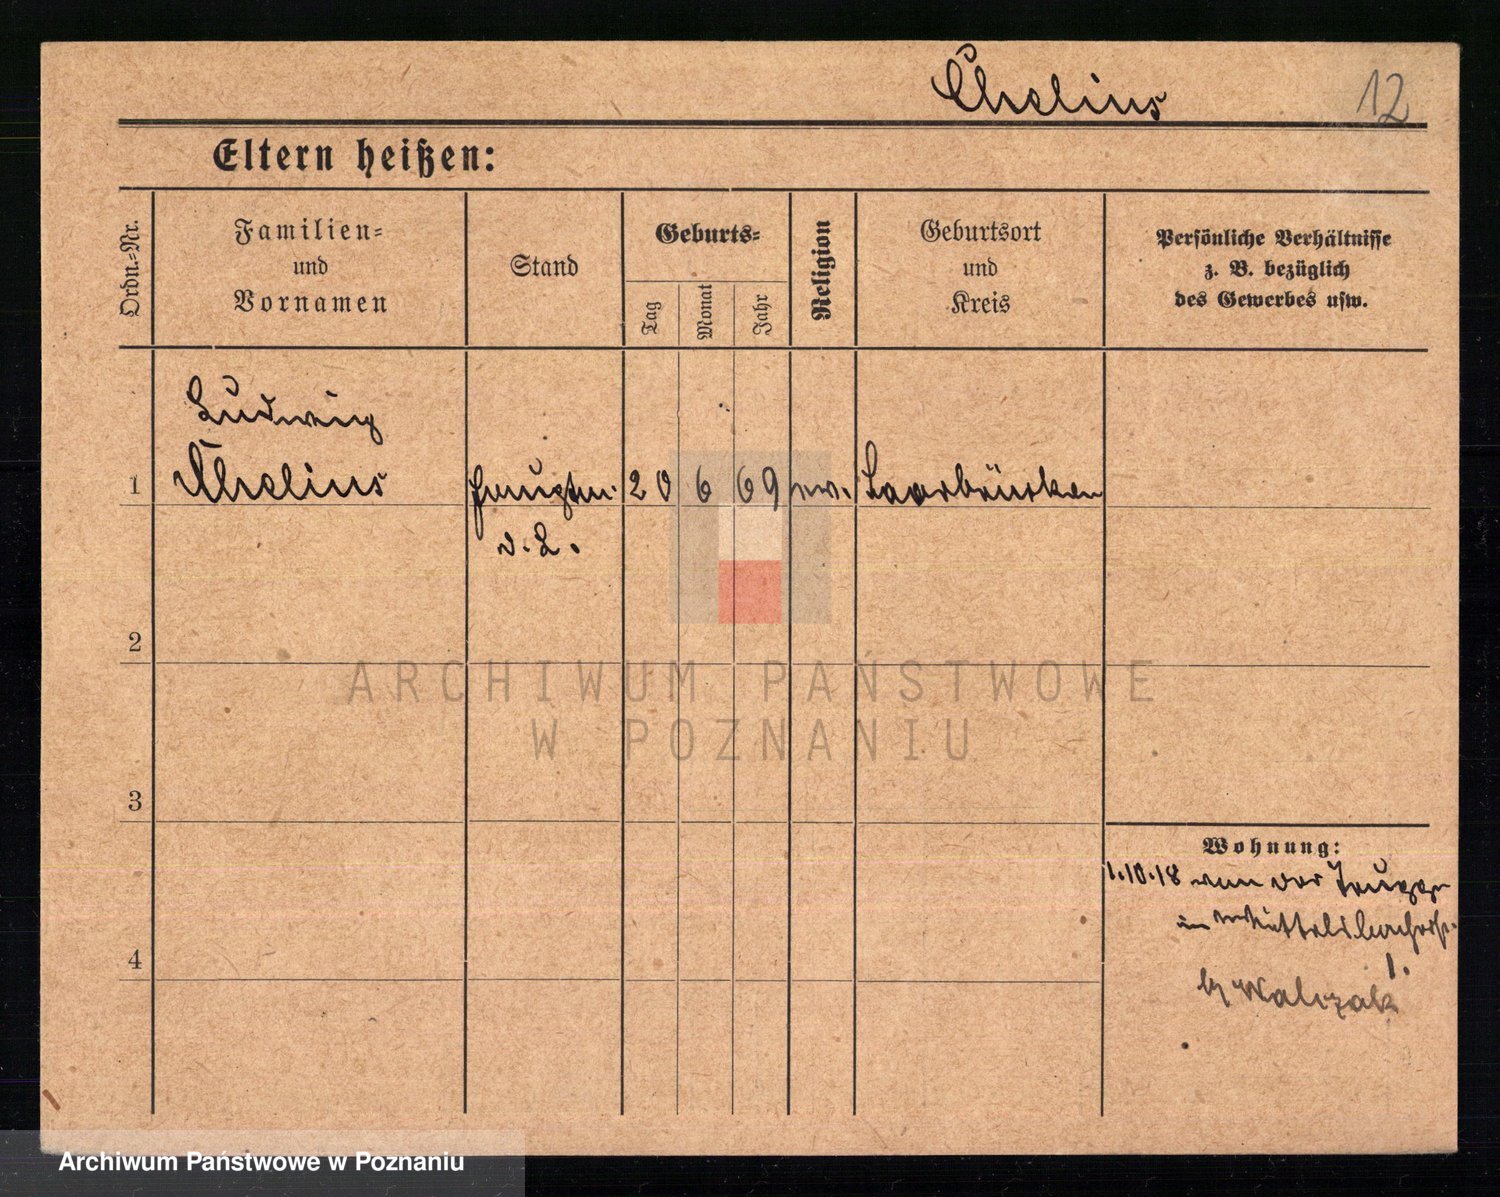 Chelius
12
Eltern heißen:
Ordn.-Nr.
Familien-
und
Vornamen
Stand
Geburts-
Tag
Monat
Jahr
Religion
Geburtsort
und
Kreis
Persönliche Verhältnisse
z. B. bezüglich
des Gewerbes usw.
Ludwig
1 Chelius Hauptm. 20 6 69 ev. Saarbrücken
d. L.
2
ARCHIWUM PAŃSTWOWE
W POZNANIU
3
Wohnung:
1.10.18 von der Truppe
in Wittelsbacherstr.
1.
4
b/ Walczak
Archiwum Państwowe w Poznaniu